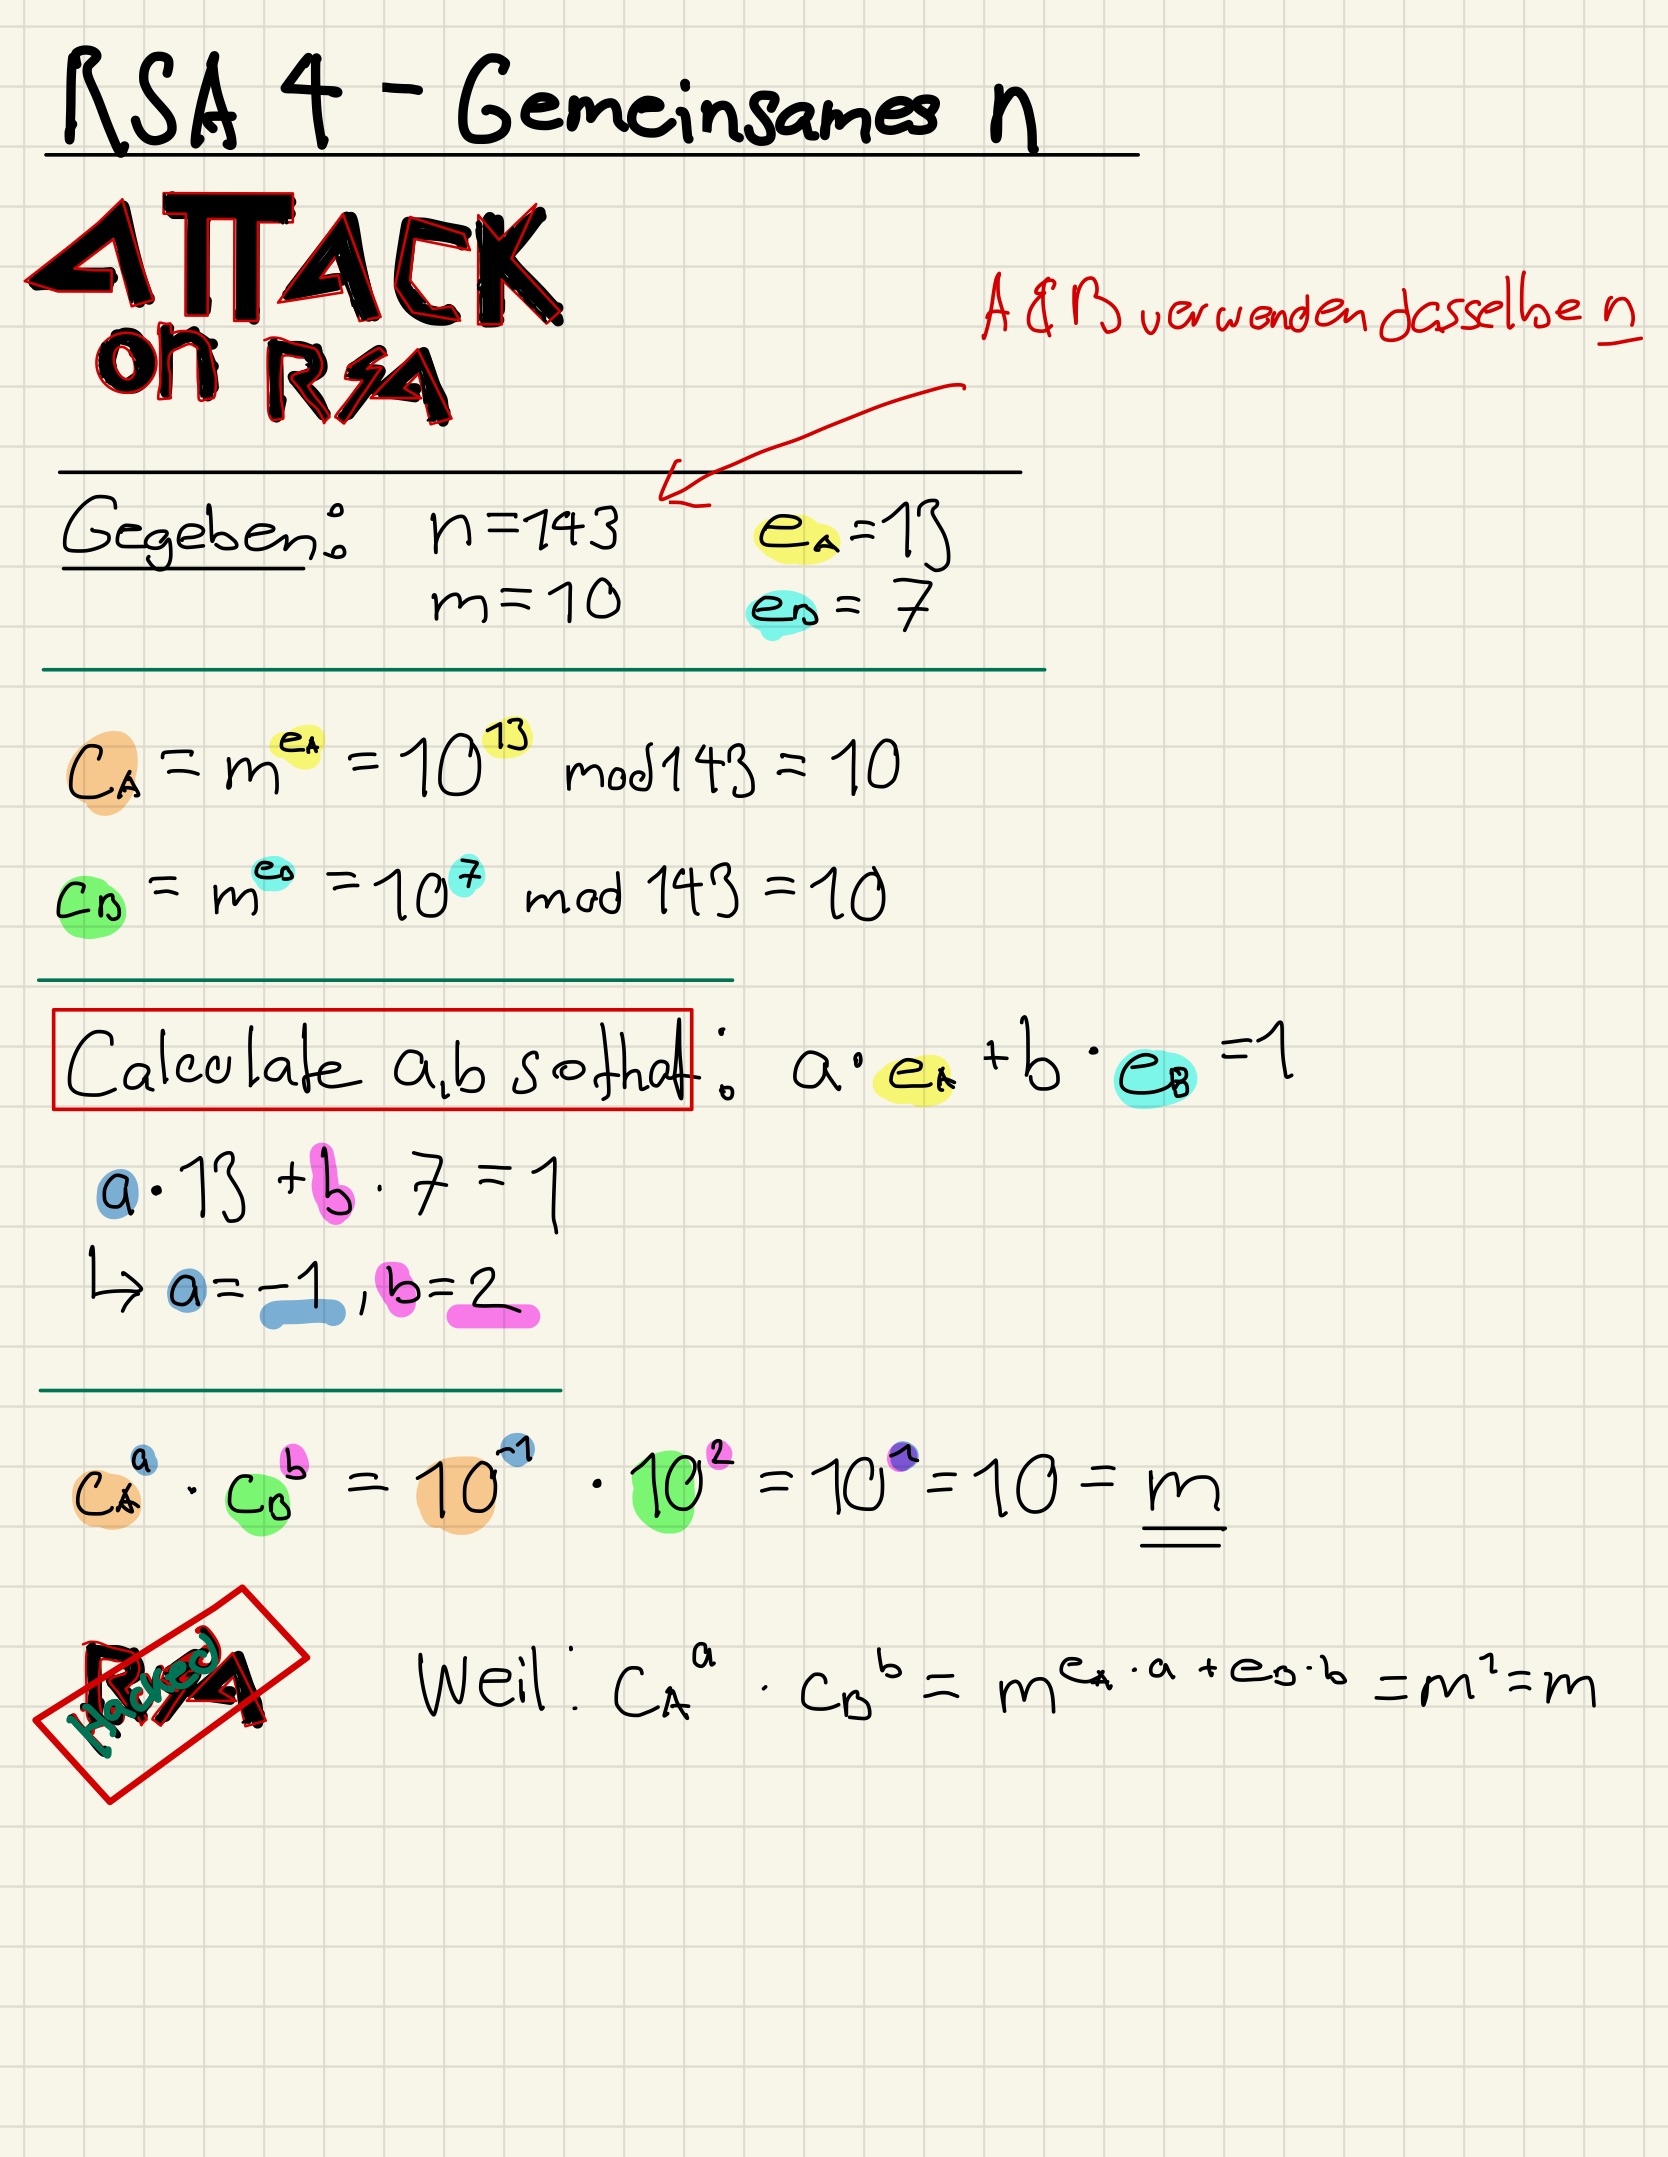 RSA 4 - Gemeinsames n
ATTACK
on RSA
A & B verwenden dasselbe n
Gegeben: n = 143 e_A = 13
m = 10 e_B = 7
C_A = m^e_A = 10^13 mod 143 = 10
C_B = m^e_B = 10^7 mod 143 = 10
Calculate a,b so that: a · e_A + b · e_B = 1
a · 13 + b · 7 = 1
↳ a = -1, b = 2
C_A^a · C_B^b = 10^-1 · 10^2 = 10^1 = 10 = m
RSA
Hacked
Weil: C_A^a · C_B^b = m^(e_A · a + e_B · b) = m^1 = m